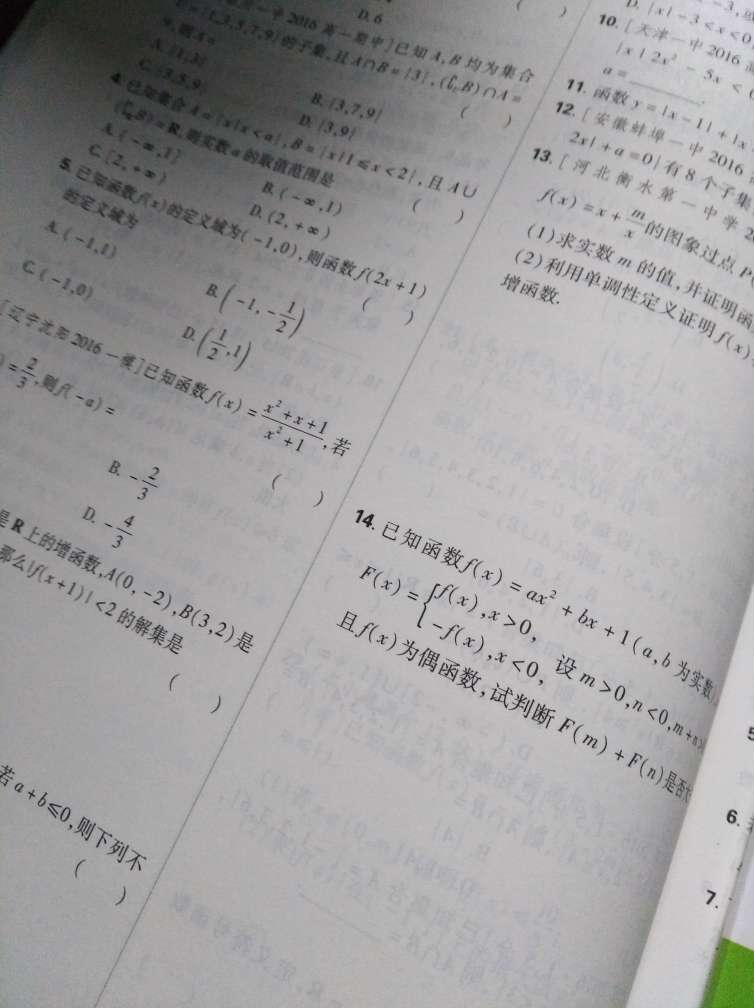 D. 6
( )
2016 高一期中]已知 A, B 均为集合
={1,3,5,7,9}的子集,且A∩B={3},(∁ᵤB)∩A=
( )
A.{1,3}
B.{3,7,9}
C.{3,5,9}
D.{3,9}
4. 已知集合 A={x|x<a}, B={x|1≤x<2},且 A∪
B)=R,则实数 a 的取值范围是
( )
A.(-∞,1]
B.(-∞,1)
C.[2,+∞)
D.(2,+∞)
5. 已知函数f(x)的定义域为(-1,0),则函数 f(2x+1)
的定义域为
( )
A.(-1,1)
B.(-1,-1/2)
C.(-1,0)
D.(1/2,1)
[辽宁沈阳 2016 一模]已知函数f(x)=(x²+x+1)/(x²+1),若
)=2/3,则f(-a)=
( )
B.-2/3
D.-4/3
是 R 上的增函数,A(0,-2),B(3,2)是
那么|f(x+1)|<2 的解集是
( )
若 a+b≤0,则下列不
( )
-3,或
D.{x|-3<x<0
10. [天津一中 2016
{x|2x²-5x<
a=____.
11. 函数 y=|x-1|+|x
12. [安徽蚌埠一中 2016
2x|+a=0}有 8 个子集
13. [河北衡水第一中学 2
f(x)=x+m/x的图象过点 P
(1)求实数 m 的值,并证明函
(2)利用单调性定义证明 f(x)
增函数.
14. 已知函数f(x)=ax²+bx+1(a,b 为实数
F(x)={f(x),x>0,
-f(x),x<0, 设 m>0,n<0,m+n>
且 f(x)为偶函数,试判断 F(m)+F(n)是否
6.
7.